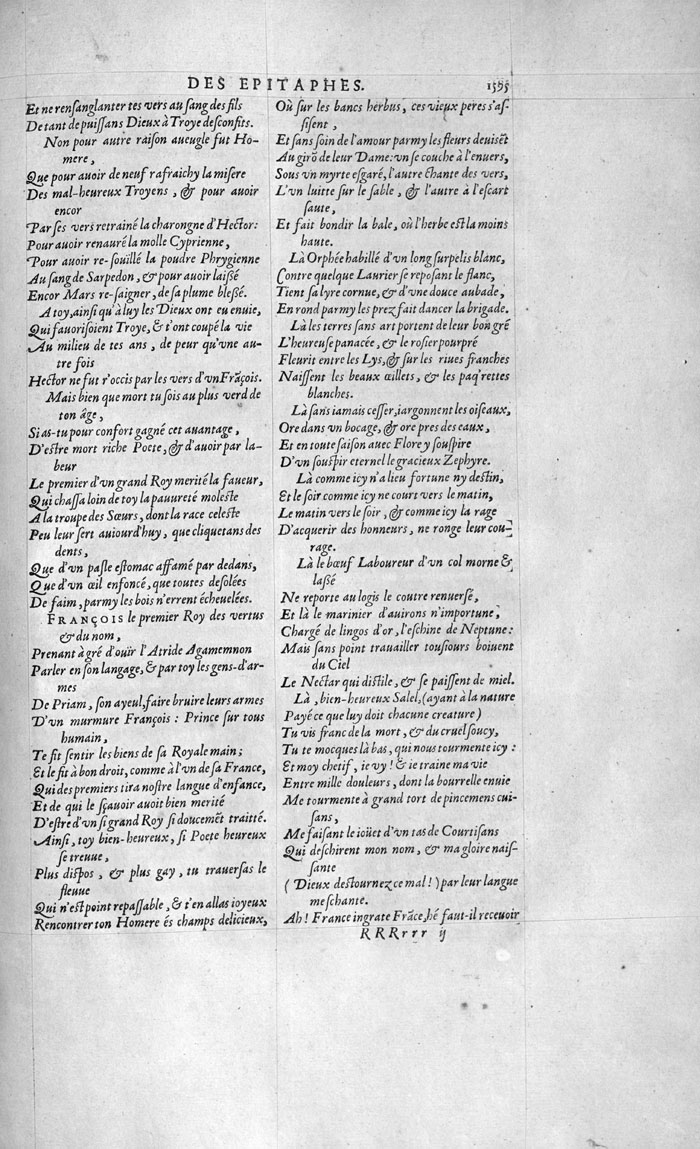 DES EPITAPHES. 1595
Et ne rensanglanter tes vers au sang des fils
De tant de puissans Dieux à Troye desconfits.
Non pour autre raison aueugle fut Ho-
mere,
Que pour auoir de neuf rafraichy la misere
Des mal-heureux Troyens, & pour auoir
encor
Par ses vers retrainé la charongne d'Hector:
Pour auoir renauré la molle Cyprienne,
Pour auoir re-souillé la poudre Phrygienne
Au sang de Sarpedon, & pour auoir laissé
Encor Mars re-saigner, de sa plume blessé.
A toy, ainsi qu'à luy les Dieux ont eu enuie,
Qui fauorisoient Troye, & t'ont coupé la vie
Au milieu de tes ans, de peur qu'vne au-
tre fois
Hector ne fut r'occis par les vers d'vn Frãçois.
Mais bien que mort tu sois au plus verd de
ton âge,
Si as-tu pour confort gagné cet auantage,
D'estre mort riche Poete, & d'auoir par la-
beur
Le premier d'vn grand Roy merité la faueur,
Qui chassa loin de toy la pauureté moleste
A la troupe des Sœurs, dont la race celeste
Peu leur sert auiourd'huy, que cliquetans des
dents,
Que d'vn pasle estomac affamé par dedans,
Que d'vn œil enfoncé, que toutes desolées
De faim, parmy les bois n'errent écheuelées.
FRANÇOIS le premier Roy des vertus
& du nom,
Prenant à gré d'ouïr l'Atride Agamemnon
Parler en son langage, & par toy les gens-d'ar-
mes
De Priam, son ayeul, faire bruire leurs armes
D'vn murmure François: Prince sur tous
humain,
Te fit sentir les biens de sa Royale main;
Et le fit à bon droit, comme à l'vn de sa France,
Qui des premiers tira nostre langue d'enfance,
Et de qui le sçauoir auoit bien merité
D'estre d'vn si grand Roy si doucemẽt traitté.
Ainsi, toy bien-heureux, si Poete heureux
se treuue,
Plus dispos, & plus gay, tu trauersas le
fleuue
Qui n'est point repassable, & t'en allas ioyeux
Rencontrer ton Homere és champs delicieux,
Où sur les bancs herbus, ces vieux peres s'as-
sisent,
Et sans soin de l'amour parmy les fleurs deuisẽt
Au girõ de leur Dame: vn se couche à l'enuers,
Sous vn myrte esgaré, l'autre chante des vers,
L'vn luitte sur le sable, & l'autre à l'escart
saute,
Et fait bondir la bale, où l'herbe est la moins
haute.
Là Orphée habillé d'vn long surpelis blanc,
Contre quelque Laurier se reposant le flanc,
Tient sa lyre cornue, & d'vne douce aubade,
En rond parmy les prez fait dancer la brigade.
Là les terres sans art portent de leur bon gré
L'heureuse panacée, & le rosier pourpré
Fleurit entre les Lys, & sur les riues franches
Naissent les beaux œillets, & les paq'rettes
blanches.
Là sans iamais cesser, iargonnent les oiseaux,
Ore dans vn bocage, & ore pres des eaux,
Et en toute saison auec Flore y souspire
D'vn souspir eternel le gracieux Zephyre.
Là comme icy n'a lieu fortune ny destin,
Et le soir comme icy ne court vers le matin,
Le matin vers le soir, & comme icy la rage
D'acquerir des honneurs, ne ronge leur cou-
rage.
Là le bœuf Laboureur d'vn col morne &
lassé
Ne reporte au logis le coutre renuersé,
Et là le marinier d'auirons n'importune,
Chargé de lingos d'or, l'eschine de Neptune:
Mais sans point trauailler tousiours boiuent
du Ciel
Le Nectar qui distile, & se paissent de miel.
Là, bien-heureux Salel, (ayant à la nature
Payé ce que luy doit chacune creature)
Tu vis franc de la mort, & du cruel soucy,
Tu te mocques là bas, qui nous tourmente icy:
Et moy chetif, ie vy! & ie traine ma vie
Entre mille douleurs, dont la bourrelle enuie
Me tourmente à grand tort de pincemens cui-
sans,
Me faisant le ioüet d'vn tas de Courtisans
Qui deschirent mon nom, & ma gloire nais-
sante
(Dieux destournez ce mal!) par leur langue
meschante.
Ah! France ingrate Frãce, hé faut-il receuoir
RRRrrr ij